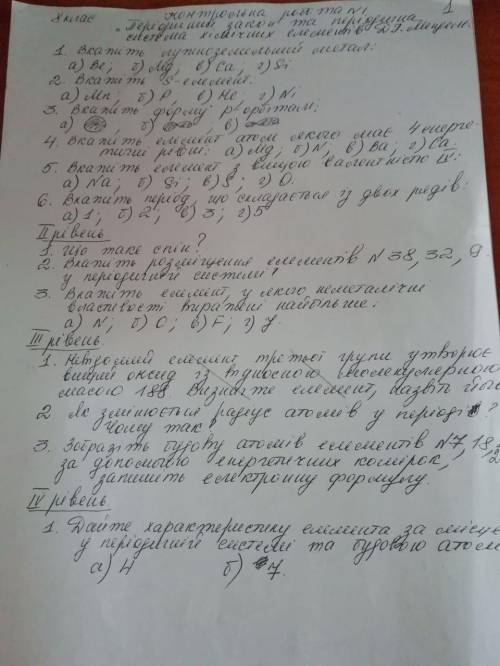 8 клас Контрольна робота №1 1
"Періодичний закон та періодична
система хімічних елементів Д.І. Менделє
1. Вкажіть лужноземельний метал:
а) Be; б) Mg; в) Ca; г) Si
2. Вкажіть S-елемент:
а) Mn; б) P; в) He; г) Ni
3. Вкажіть форму p-орбіталі:
а) б) в)
4. Вкажіть елемент атом якого має 4 енерге-
тичні рівні: а) Mg; б) N; в) Ba; г) Ca
5. Вкажіть елемент з вищою валентністю IV:
а) Na; б) Si; в) S; г) O.
6. Вкажіть період, що складається із двох рядів:
а) 1; б) 2; в) 3; г) 5
II рівень
1. Що таке спін?
2. Вкажіть розміщення елементів N 38, 32, 9
у періодичній системі,
3. Вкажіть елемент, у якого неметалічні
властивості виражені найбільше:
а) N; б) O; в) F; г) J.
III рівень
1. Невідомий елемент третьої групи утворює
вищий оксид із відносною молекулярною
масою 188. Визначте елемент, назвіть його
2 Як змінюється радіус атомів у періоді?
Чому так?
3. Зобразіть будову атомів елементів N7, 18,
за допомогою енергетичних комірок,
запишіть електронну формулу.
IV рівень
1. Дайте характеристику елемента за місце
у періодичній системі та будовою атом
а) 4 б) 7.